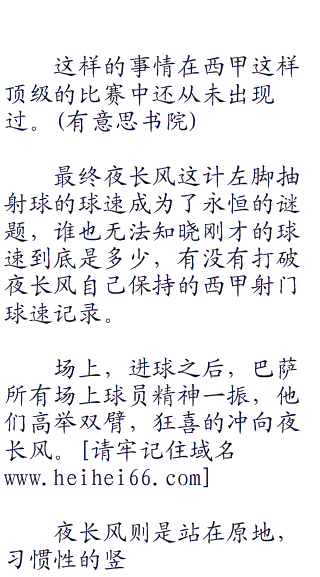 这样的事情在西甲这样
顶级的比赛中还从未出现
过。(有意思书院)
最终夜长风这计左脚抽
射球的球速成为了永恒的谜
题，谁也无法知晓刚才的球
速到底是多少，有没有打破
夜长风自己保持的西甲射门
球速记录。
场上，进球之后，巴萨
所有场上球员精神一振，他
们高举双臂，狂喜的冲向夜
长风。[请牢记住域名
www.heihei66.com]
夜长风则是站在原地，
习惯性的竖